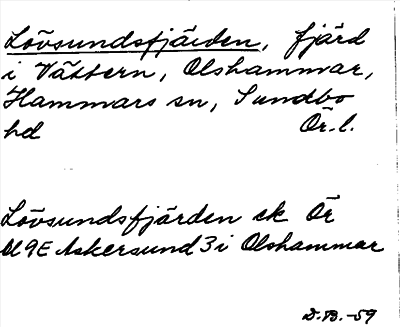 Lövsundsfjärden, fjärd
i Vättern, Olshammar,
Hammars sn, Sundbo
hd Ör. l.
Lövsundsfjärden ek Ör
bl 9E Askersund 3 i Olshammar
D. B. -59